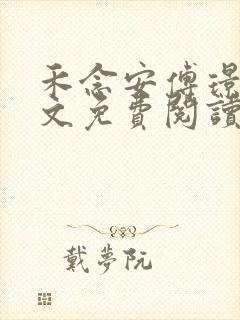 禾念安傅璟
文免費閱讀
戴夢阮